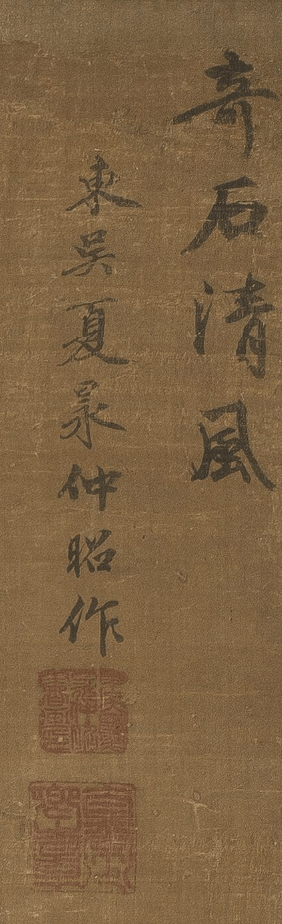 奇石清風
東吳夏㫤仲昭作